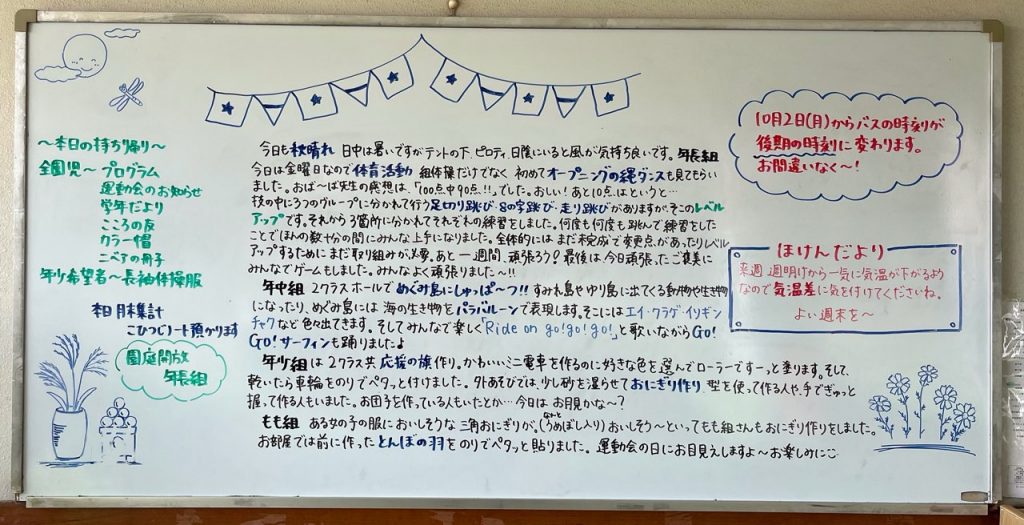 ～本日の持ち帰り～
全園児～プログラム
運動会のお知らせ
学年だより
こころの友
カラー帽
こべアの冊子
年少希望者～長袖体操服
本日月末集計
こひつじノート預かります
園庭開放
年長組
今日も秋晴れ 日中は暑いですがテントの下、ピロティ、日陰にいると風が気持ち良いです。年長組
今日は金曜日なので体育活動 組体操だけでなく、初めてオープニングの縄ダンスも見てもらい
ました。おば〜ば先生の感想は、「100点中90点!!」でした。おしい!あと10点はというと…
技の中に3つのグループに分かれて行う足切り跳び・8の字跳び・走り跳びがありますが、そこのレベル
アップです。それから3箇所に分かれてそれぞれの練習をしました。何度も何度も跳んで練習をした
ことでほんの数十分の間にみんな上手になりました。全体的にはまだ未完成で変更点があったりレベル
アップするためにまだ取り組みが必要。あと一週間、頑張ろう?最後は今日頑張ったご褒美に
みんなでゲームもしました。みんなよく頑張りました～!!
年中組 2クラスホールでめぐみ島にしゅっぱ〜つ!! すみれ島やゆり島に出てくる動物や生き物
になったり、めぐみ島には海の生き物をパラバルーンで表現します。そこにはエイ・クラゲ・イソギン
チャクなど色々出てきます。そしてみんなで楽しく「Ride on go!go!go!」と歌いながらGo!
Go!サーフィンも踊りましたよ
年少組は2クラス共 応援の旗作り。かわいいミニ電車を作るのに好きな色を選んでローラーですーっと塗ります。そして、
乾いたら車輪をのりでペタッと付けました。外あそびでは、少し砂を湿らせておにぎり作り 型を使って作る人や、手でぎゅっと
握って作る人もいました。お団子を作っている人もいたとか…今日はお月見かな～?
もも組 ある女の子の服においしそうな三角おにぎりが。(うめぼし入り)おいしそう～といってもも組さんもおにぎり作りをしました。
お部屋では前に作ったとんぼの羽をのりでペタッと貼りました。運動会の日にお目見えしますよ～お楽しみに
10月2日(月)からバスの時刻が
後期の時刻に変わります。
お間違いなく～!
ほけんだより
来週 週明けから一気に気温が下がるよう
なので気温差に気を付けてくださいね。
よい週末を～